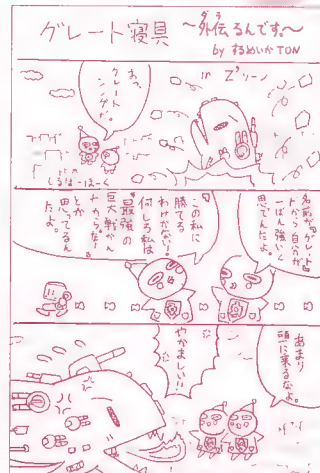 グレート寝具
～外伝るんです。～
がう
by するめいかTON
in Z'リーン
おっ、
グレート
シングだ。
しるばーほーく
名前が『グレート』
だから自分が
一ばん強いと
思ってんだよ。
『この私に
勝てる
わけがない！
何しろ私は
"最強"の
巨大戦かん
だからな！』
とか
思ってるん
だよ。
あまり
頭に来るなよ。
やかましい！！